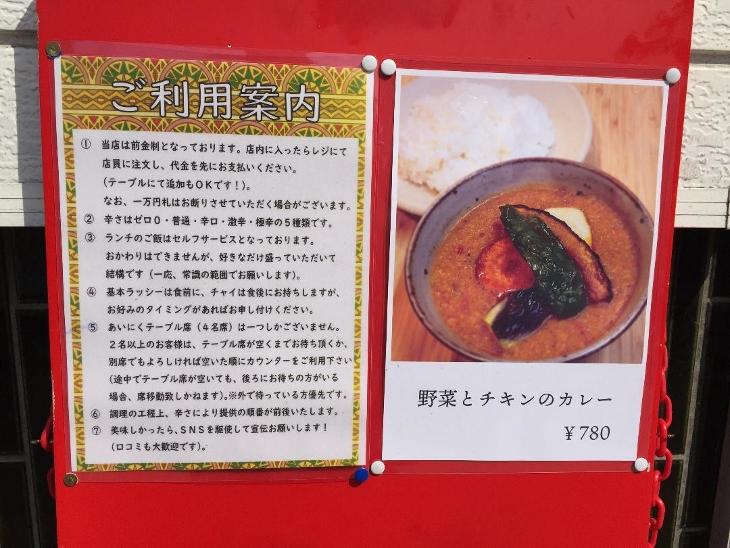 ご利用案内
① 当店は前金制となっております。店内に入ったらレジにて
店員に注文し、代金を先にお支払いください。
(テーブルにて追加もＯＫです！)。
なお、一万円札はお断りさせていただく場合がございます。
② 辛さはゼロ０・普通・辛口・激辛・極辛の５種類です。
③ ランチのご飯はセルフサービスとなっております。
おかわりはできませんが、好きなだけ盛っていただいて
結構です（一応、常識の範囲でお願いします)。
④ 基本ラッシーは食前に、チャイは食後にお持ちしますが、
お好みのタイミングがあればお申し付けください。
⑤ あいにくテーブル席（４名席）は一つしかございません。
２名以上のお客様は、テーブル席が空くまでお待ち頂くか、
別席でもよろしければ空いた順にカウンターをご利用下さい
(途中でテーブル席が空いても、後ろにお待ちの方がいる
場合、席移動致しかねます)。※外で待っている方優先です。
⑥ 調理の工程上、辛さにより提供の順番が前後いたします。
⑦ 美味しかったら、ＳＮＳを駆使して宣伝お願いします！
(口コミも大歓迎です)。
野菜とチキンのカレー
￥780